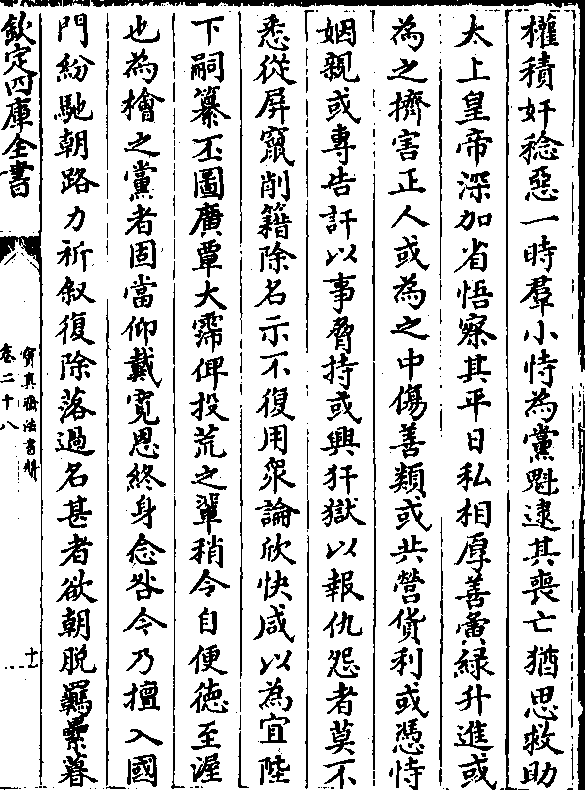 權積奸稔惡一時羣小恃為黨魁逮其喪亡猶思救助
太上皇帝深加省悟察其平日私相厚善夤緣升進或
為之擠害正人或為之中傷善類或共營貨利或憑恃
姻親或專告訐以事脅持或興犴獄以報仇怨者莫不
悉從屏竄削籍除名示不復用衆論欣快咸以為宜陛
下嗣纂丕圖廣覃大霈俾投荒之輩稍令自便徳至渥
也為檜之黨者固當仰戴寛恩終身念咎今乃擅入國
門紛馳朝路力祈叙復除落過名甚者欲朝脫羈縻暮
欽定四庫全書
寶真齋法書贊
卷二十八
十一